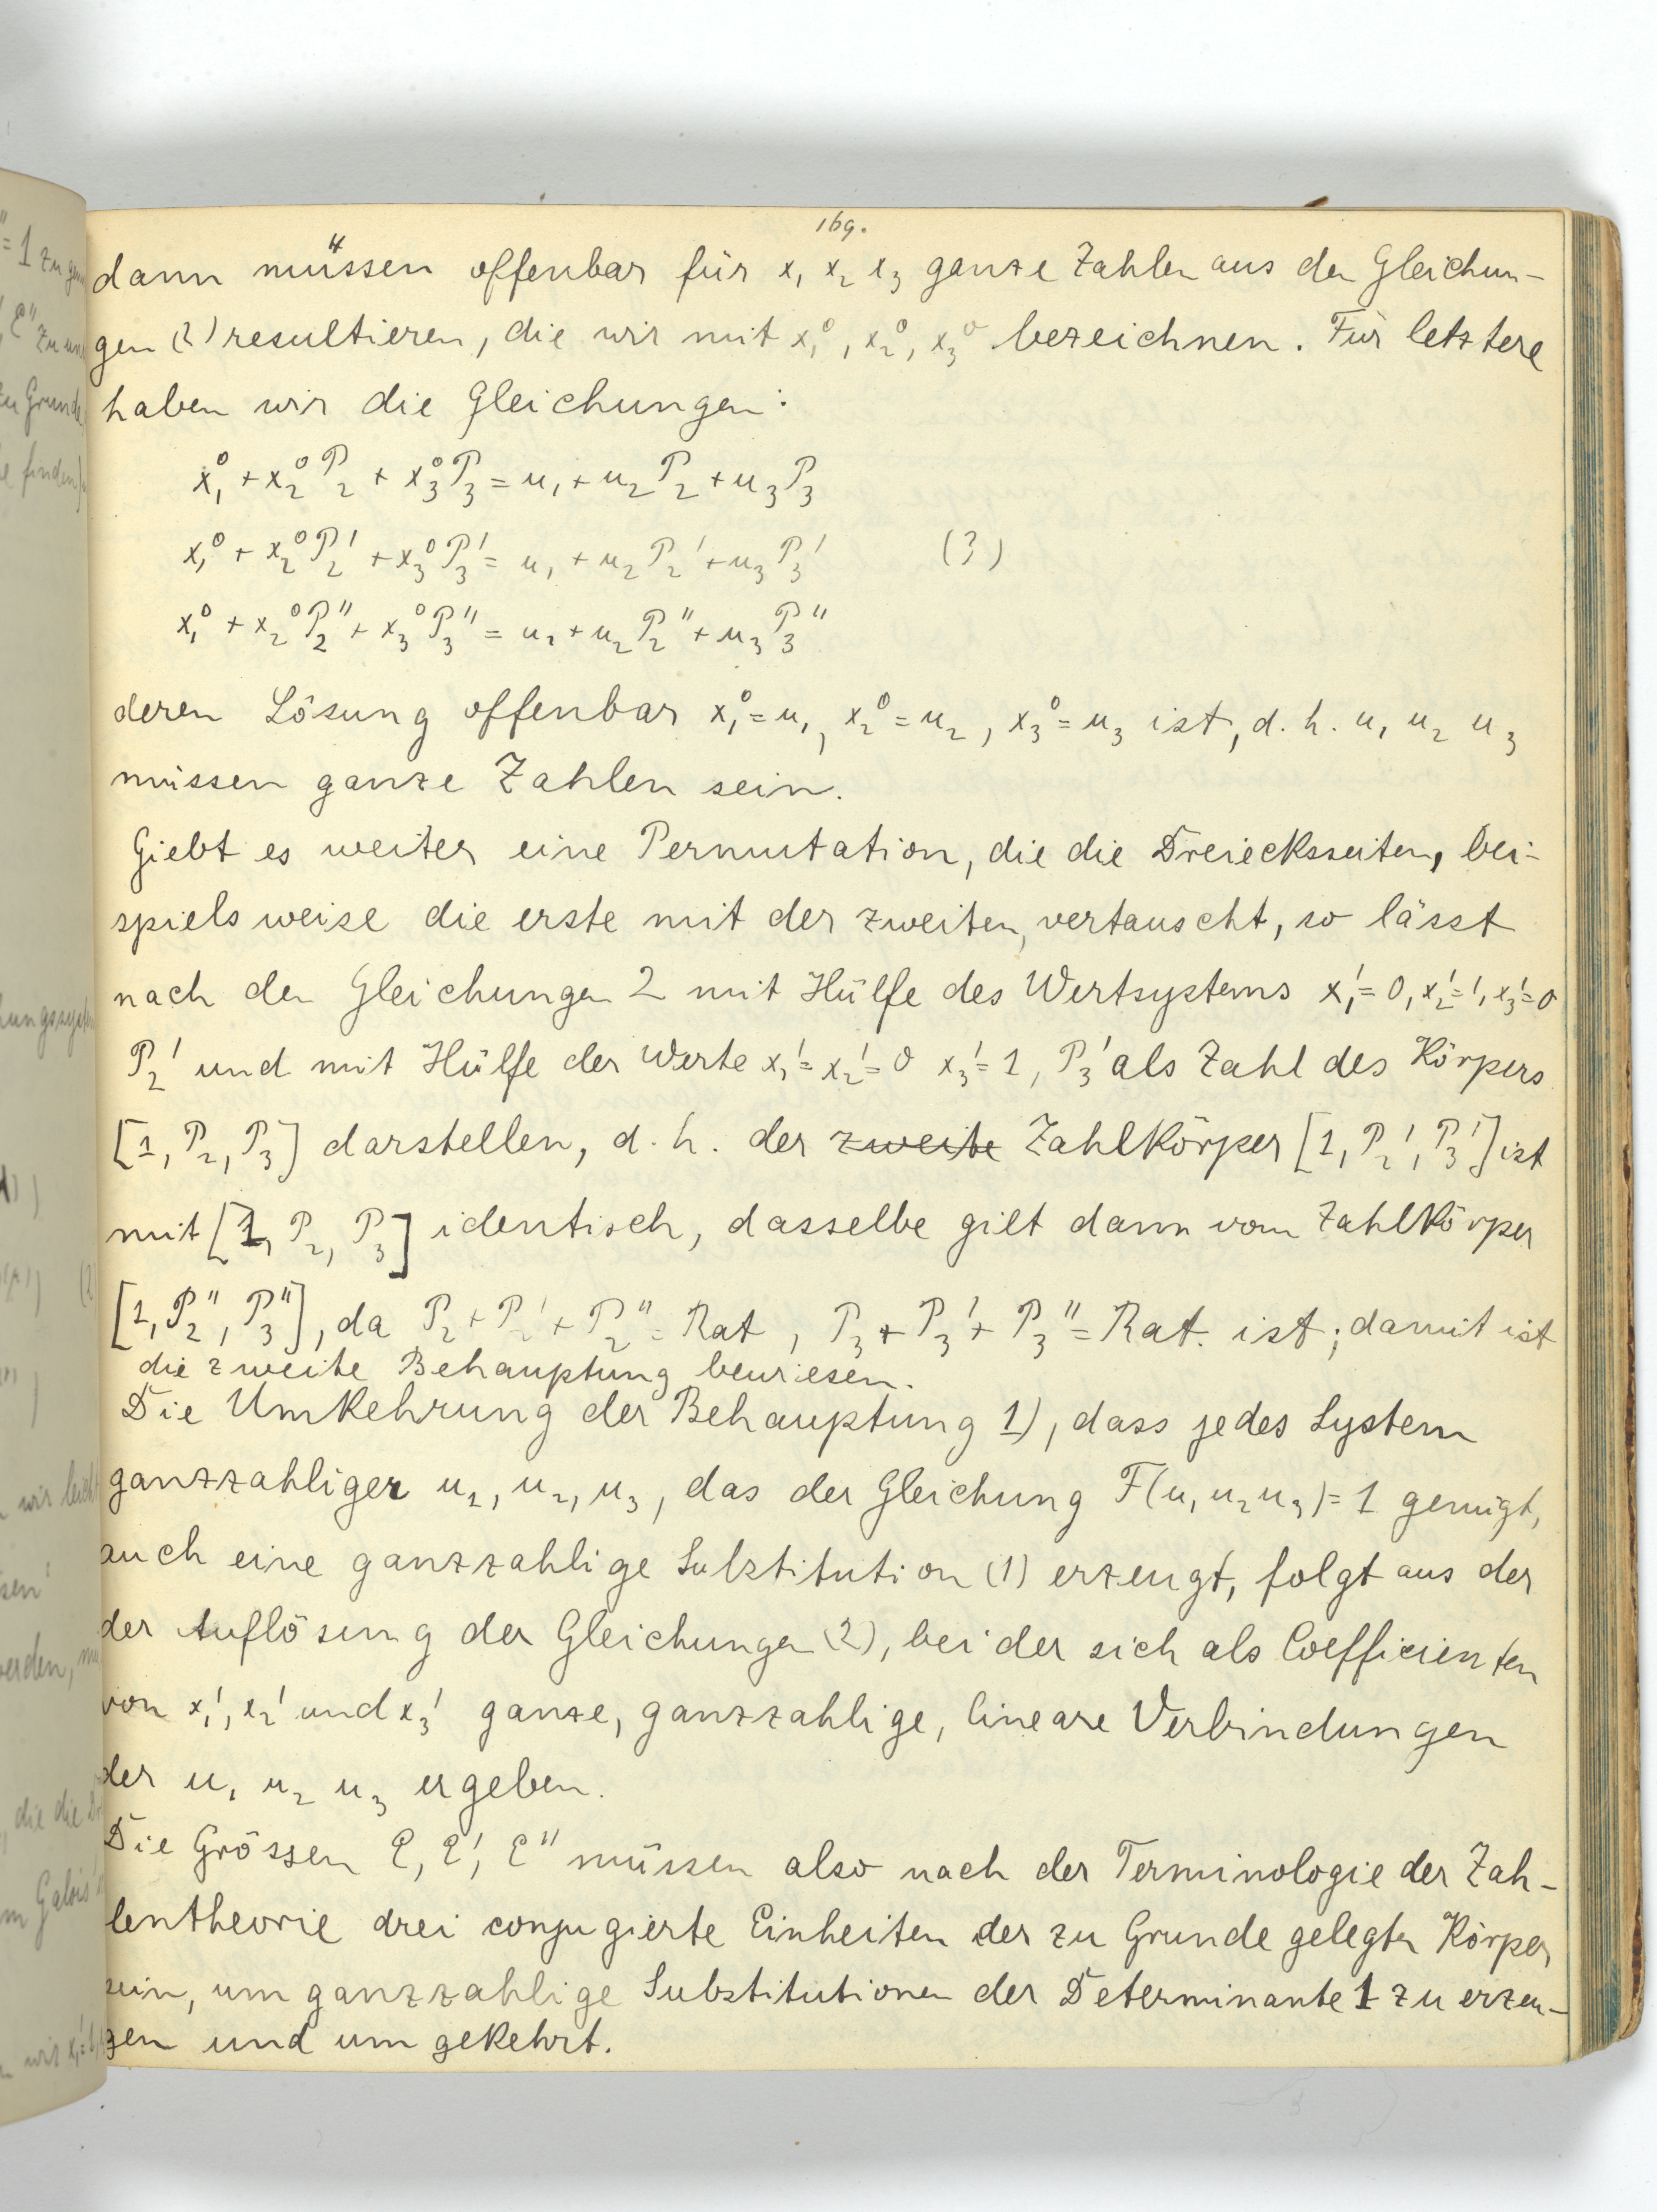 169.
dann müssen offenbar für x₁ x₂ x₃ ganze Zahlen aus den Gleichun-
gen (2) resultieren, die wir mit x₁⁰, x₂⁰, x₃⁰ bezeichnen. Für letztere
haben wir die Gleichungen:
x₁⁰ + x₂⁰ P₂ + x₃⁰ P₃ = u₁ + u₂ P₂ + u₃ P₃
x₁⁰ + x₂⁰ P₂' + x₃⁰ P₃' = u₁ + u₂ P₂' + u₃ P₃' (3)
x₁⁰ + x₂⁰ P₂'' + x₃⁰ P₃'' = u₁ + u₂ P₂'' + u₃ P₃''
deren Lösung offenbar x₁⁰ = u₁, x₂⁰ = u₂, x₃⁰ = u₃ ist, d. h. u₁ u₂ u₃
müssen ganze Zahlen sein.
Giebt es weiter eine Permutation, die die Dreiecksseiten, bei-
spielsweise die erste mit der zweiten, vertauscht, so lässt
nach den Gleichungen 2 mit Hülfe des Wertsystems x₁' = 0, x₂' = 1, x₃' = 0
P₂' und mit Hülfe der Werte x₁' = x₂' = 0 x₃' = 1, P₃' als Zahl des Körpers
[1, P₂, P₃] darstellen, d. h. der zweite Zahlkörper [1, P₂', P₃'] ist
mit [1, P₂, P₃] identisch, dasselbe gilt dann vom Zahlkörper
[1, P₂'', P₃''], da P₂ + P₂' + P₂'' = Rat, P₃ + P₃' + P₃'' = Rat. ist; damit ist
die zweite Behauptung bewiesen.
Die Umkehrung der Behauptung 1), dass jedes System
ganzzahliger u₁, u₂, u₃, das der Gleichung F(u₁ u₂ u₃) = 1 genügt,
auch eine ganzzahlige Substitution (1) erzeugt, folgt aus der
der Auflösung der Gleichungen (2), bei der sich als Coefficienten
von x₁', x₂' und x₃' ganze, ganzzahlige, lineare Verbindungen
der u₁ u₂ u₃ ergeben.
Die Grössen ℓ, ℓ', ℓ'' müssen also nach der Terminologie der Zah-
lentheorie drei conjugierte Einheiten der zu Grunde gelegten Körper
sein, um ganzzahlige Substitutionen der Determinante 1 zu erzeu-
gen und umgekehrt.